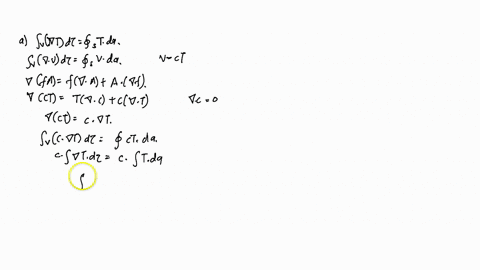 a) ∫v(∇T)dτ = ∮s T.da.
∫v(∇.v)dτ = ∮s v.da. v=cT
∇(fA) = f(∇.A) + A.(∇f).
∇(cT) = T(∇.c) + c(∇.T) ∇c = 0
∇(cT) = c.∇T.
∫v(c.∇T)dτ = ∮ cT.da.
c.∫∇T.dτ = c.∫T.da
∫